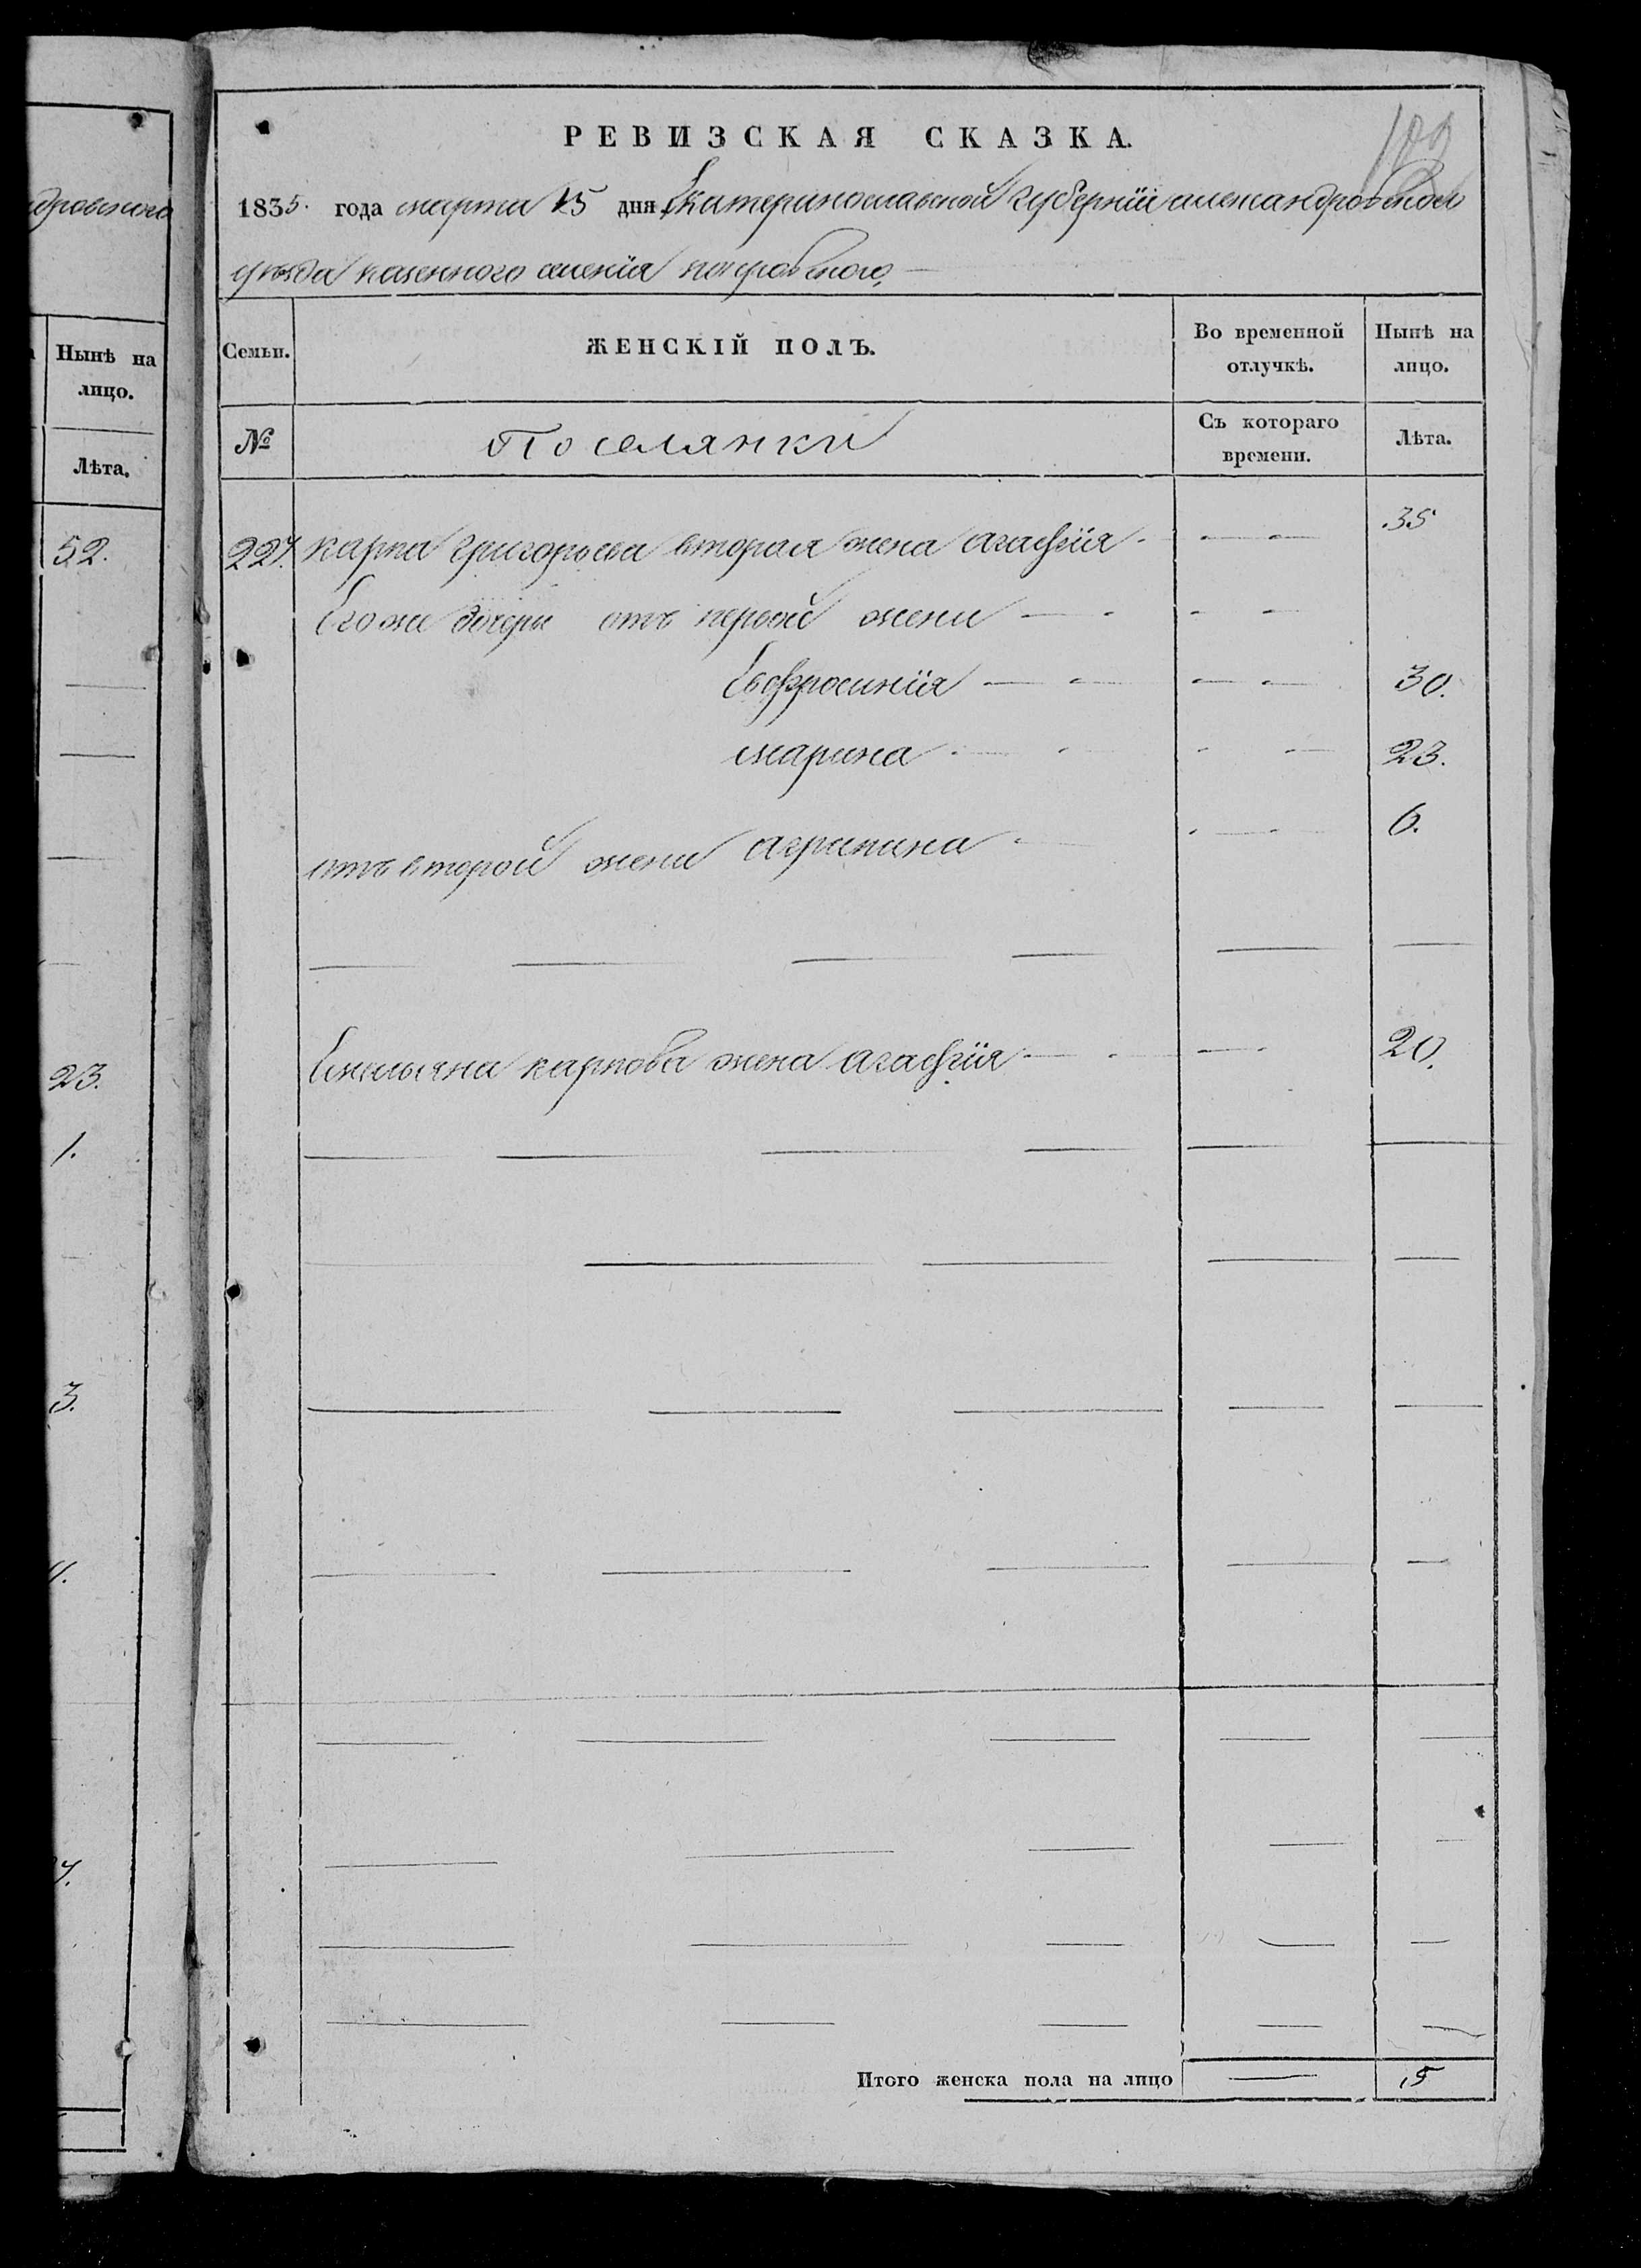 дровского
Нынѣ на
лицо.
Лѣта.
52.
23.
1.
3.
109
РЕВИЗСКАЯ СКАЗКА.
1835. года марта 15 дня Екатеринославской губернїи александровского
уѣзда казенного селенїя покровского,
Семьи.
ЖЕНСКІЙ ПОЛЪ.
Во временной
отлучкѣ.
Нынѣ на
лицо.
№
Поселянки
Съ котораго
времени.
Лѣта.
227. карпа григорьева вторая жена агафїя 35
Егоже дочери отъ первой жени
Евфросинїя 30.
марина 23.
отъ второй жени агрипина 6.
Емильяна карпова жена агафїя 20.
Итого женска пола на лицо 5